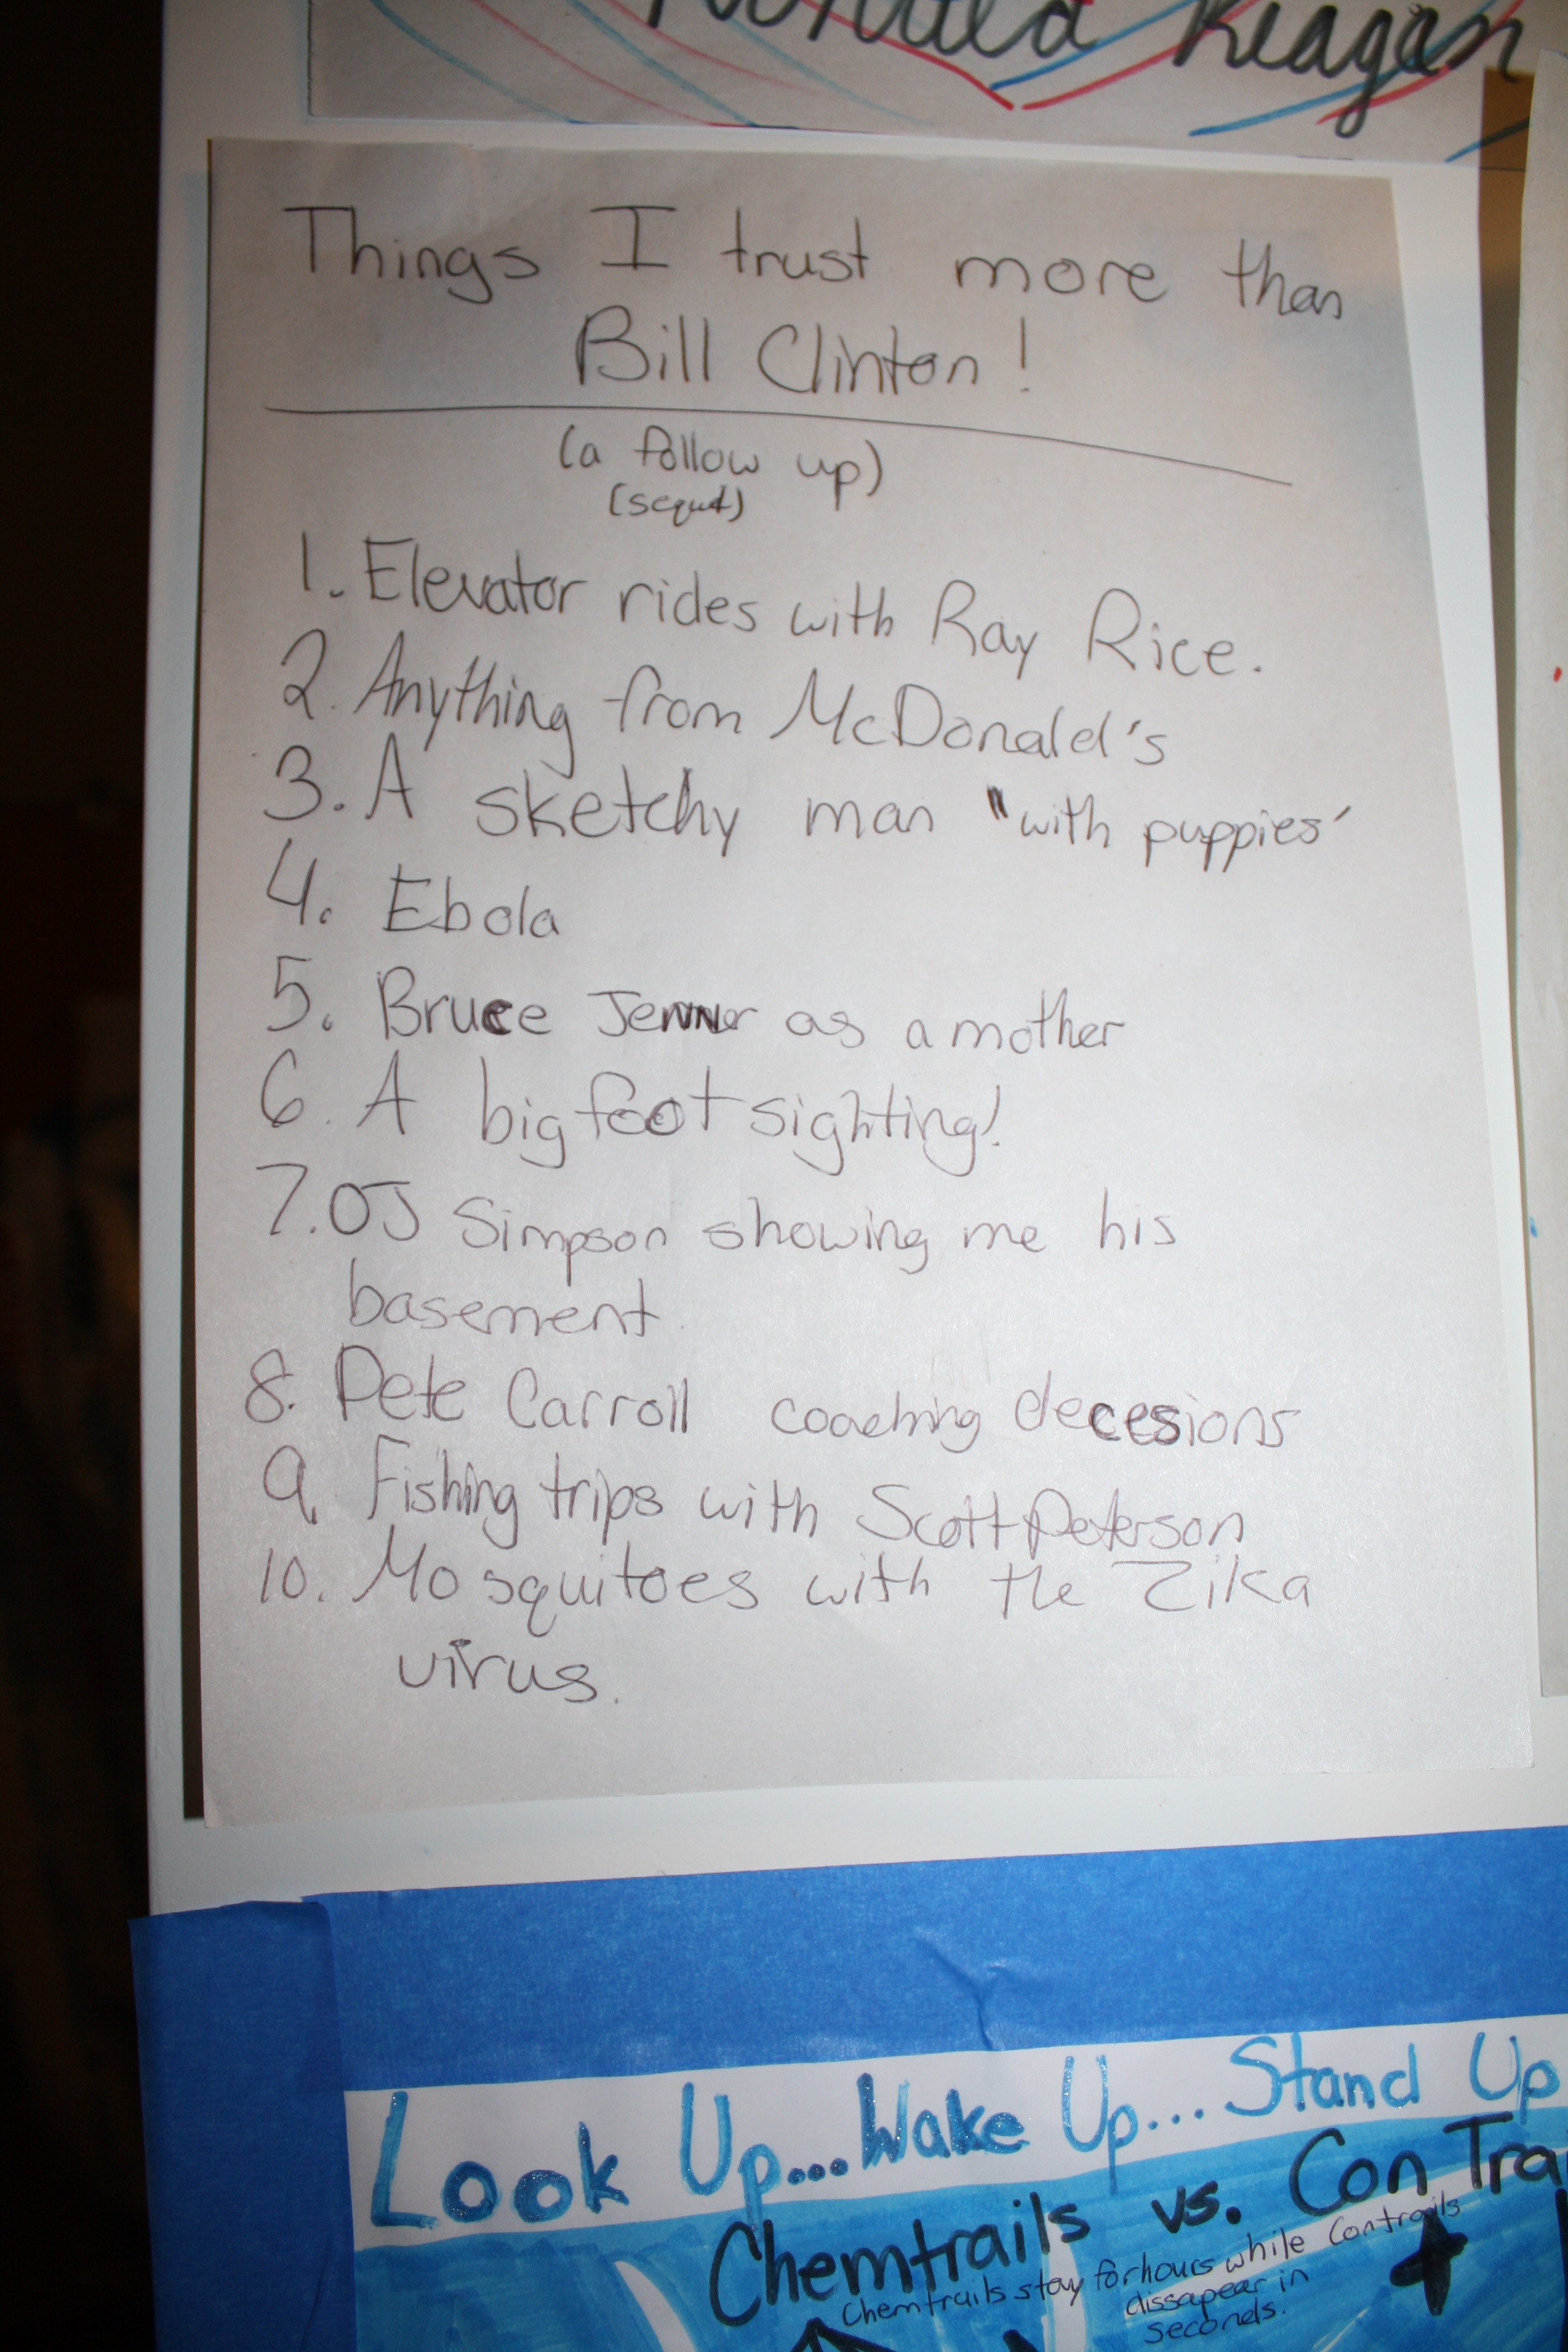 Ronald Reagan
Things I trust more than
Bill Clinton!
(a follow up)
(sequel)
1. Elevator rides with Ray Rice.
2. Anything from McDonald's
3. A sketchy man "with puppies'
4. Ebola
5. Bruce Jenner as a mother
6. A bigfoot sighting!
7. OJ Simpson showing me his
basement.
8. Pete Carroll coaching decesions
9. Fishing trips with Scott Peterson
10. Mosquitoes with the Zika
virus.
Look Up... Wake Up... Stand Up
Chemtrails vs. Con Tra
Chemtrails stay for hours while Contrails
dissapear in
seconds.